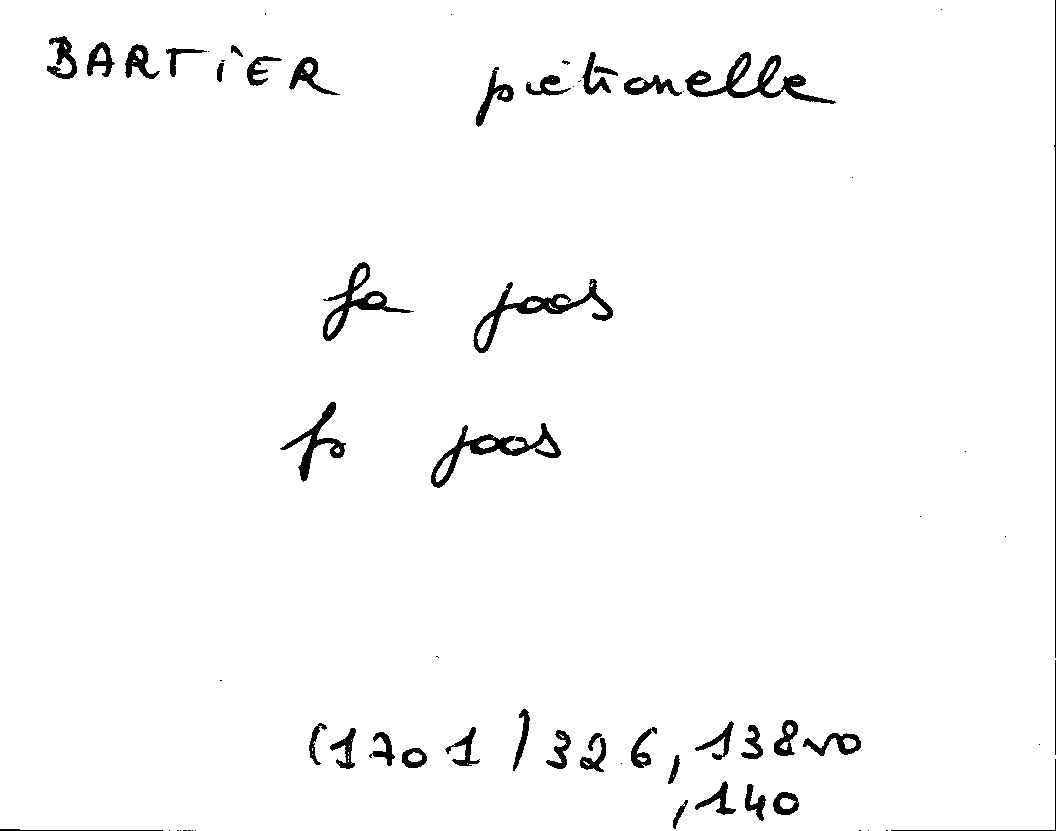 BARTIER pietronelle
fa joos
fs joos
(1701) 326, 138vo
, 140